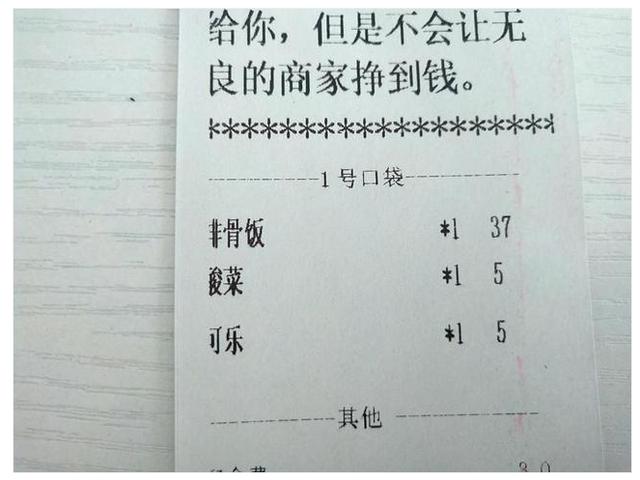 给你，但是不会让无
良的商家挣到钱。
********************
1号口袋
排骨饭 *1 37
酸菜 *1 5
可乐 *1 5
其他